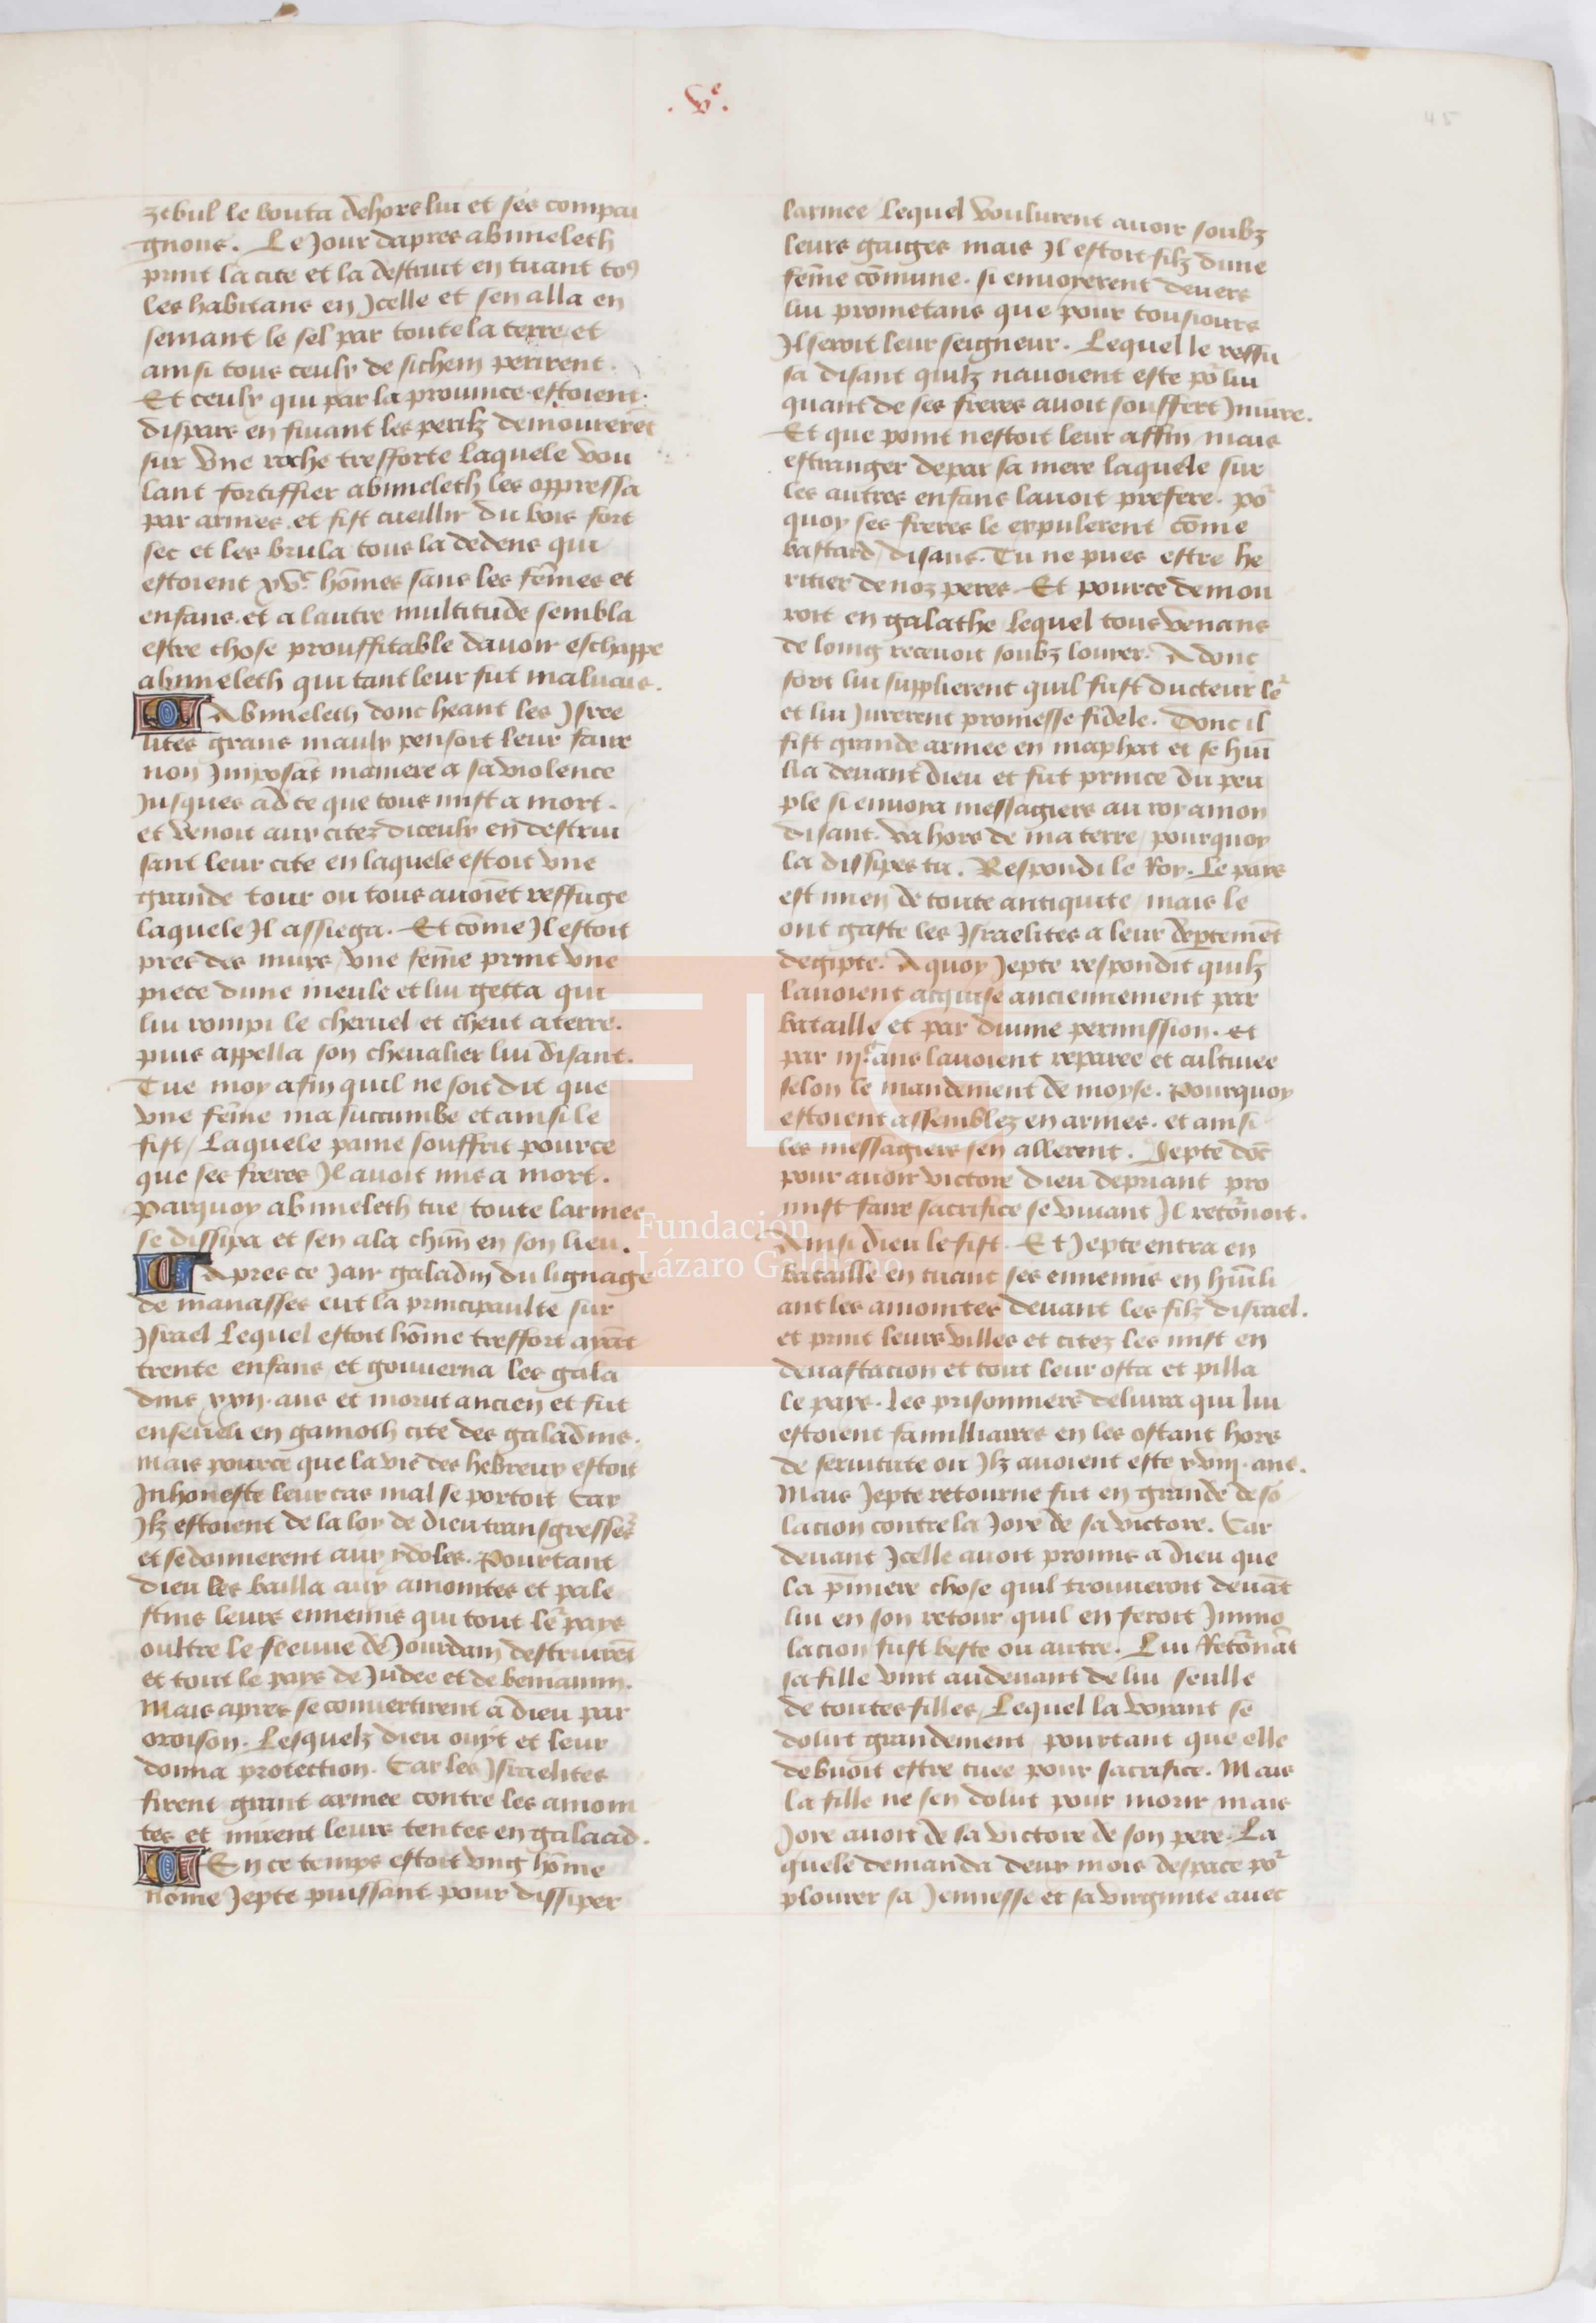 .Ve.
45
zebul le bouta dehors lui et ses compai
gnons. Le Jour dapres abimeleth
print la cite et la destruit en tuant tous
les habitans en Jcelle et sen alla en
semant le sel par toute la terre et
ainsi tous ceulx de sichem perirent.
Et ceulx qui par la prouince estoient
dispars en fuiant les perilz demourerēt
sur vne roche tresforte laquele vou
lant fortiffier abimeleth les oppressa
par armes. et fist cueillir du bois fort
sec et les brula tous la dedens qui
estoient xvc. hōmes sans les fēmes et
enfans. et a lautre multitude sembla
estre chose prouffitable dauoir eschappe
abimeleth qui tant leur fut maluais.
Abimeleth donc heant les Jsrae
lites grans maulx pensoit leur faire
non Jmposāt maniere a sa violence
Jusques ad ce que tous mist a mort.
et venoit aux citez diceulx en destrui
sant leur cite en laquele estoit vne
grande tour ou tous auoiēt reffuge
laquele Jl assiega. Et cōme Jl estoit
pres des murs / vne fēme print vne
piece dune meule et lui getta qui
lui rompi le cheruel et cheut a terre.
puis appella son cheualier lui disant.
Tue moy afin quil ne soit dit que
vne fēme ma succumbe et ainsi le
fist / Laquele paine souffrit pource
que ses freres Jl auoit mis a mort.
Parquoy abimeleth tue toute larmee
se dissipa et sen ala chūn en son lieu.
Apres ce Jair galadin du lignage
de manasses eut la principaulte sur
Jsrael Lequel estoit hōme tresfort ayāt
trente enfans et gouuerna les gala
dins xxij. ans et morut ancien et fut
enseueli en gamoth cite des galadins.
Mais pource que la vie des hebreux estoit
Jnhoneste leur cas mal se portoit Car
Jlz estoient de la loy de dieu transgresseʳs
et se donnerent aux ydoles. Pourtant
dieu les bailla aux amonites et pale
stins leurs ennemis qui tout le pays
oultre le fleuue de Jourdain destruirēt
et tout le pays de Judee et de beniamin.
Mais apres se conuertirent a dieu par
oroison. Lesquelz dieu ouyt et leur
donna protection. Car les Jsraelites
firent grant armee contre les amoni
tes et mirent leurs tentes en galaad.
En ce temps estoit vng hōme
nōme Jepte puissant pour dissiper
larmee Lequel voulurent auoir soubz
leurs gaiges mais Jl estoit filz dune
fēme cōmune. si enuoyerent deuers
lui prometans que pour tousiours
Jl seroit leur seigneur. Lequel le reffu
sa disant quilz nauoient este poʳ lui
quant de ses freres auoit souffert Jniure.
Et que point nestoit leur affin mais
estranger de par sa mere laquele sur
les autres enfans lauoit prefere. poʳ
quoy ses freres le expulerent cōme
bastard / disans. Tu ne pues estre he
ritier de noz peres. Et pource demou
roit en galathe lequel tous venans
de loing receuoit soubz louyer. A donc
fort lui supplierent quil fust ducteur leʳ
et lui Jurerent promesse fidele. Donc il
fist grande armee en maphat et se hūi
lia deuant dieu et fut prince du peu
ple si enuoia messagiers au roy amon
disant. va hors de ma terre / pourquoy
la dissipes tu. Respondi le Roy. Le pays
est mien de toute antiquite / mais le
ont gaste les Jsraelites a leur deptemēt
degipte. A quoy Jepte respondit quilz
lauoient acquise anciennement par
bataille et par diuine permission. et
par iijc. ans lauoient reparee et cultiuee
selon le mandement de moyse. Pourquoy
estoient assemblez en armes. et ainsi
les messagiers sen allerent. Jepte dōc
pour auoir victore dieu depriant pro
mist faire sacrifice se viuant Jl retoʳnoit.
Ainsi dieu le fist. Et Jepte entra en
bataille en tuant ses ennemis en hūili
ant les amonites deuant les filz disrael.
et print leurs villes et citez les mist en
deuastacion et tout leur osta et pilla
le pays. Les prisonniers deliura qui lui
estoient familliaires en les ostant hors
de seruitute ou Jlz auoient este xviij. ans.
Mais Jepte retourne fut en grande deso
lacion contre la Joye de sa victore. Car
deuant Jcelle auoit promis a dieu que
la p̄miere chose quil trouueroit deuāt
lui en son retour quil en feroit Jmmo
lacion fust beste ou autre. Lui Retoʳnāt
sa fille vint audeuant de lui seulle
de toutes filles / Lequel la voyant se
dolut grandement / pourtant que elle
debuoit estre tuee pour sacrifice. Mais
la fille ne sen dolut pour morir mais
Joye auoit de la victore de son pere. La
quele demanda deux mois despace poʳ
plourer sa Jennesse et sa virginite auec
Fundación
Lázaro Galdiano